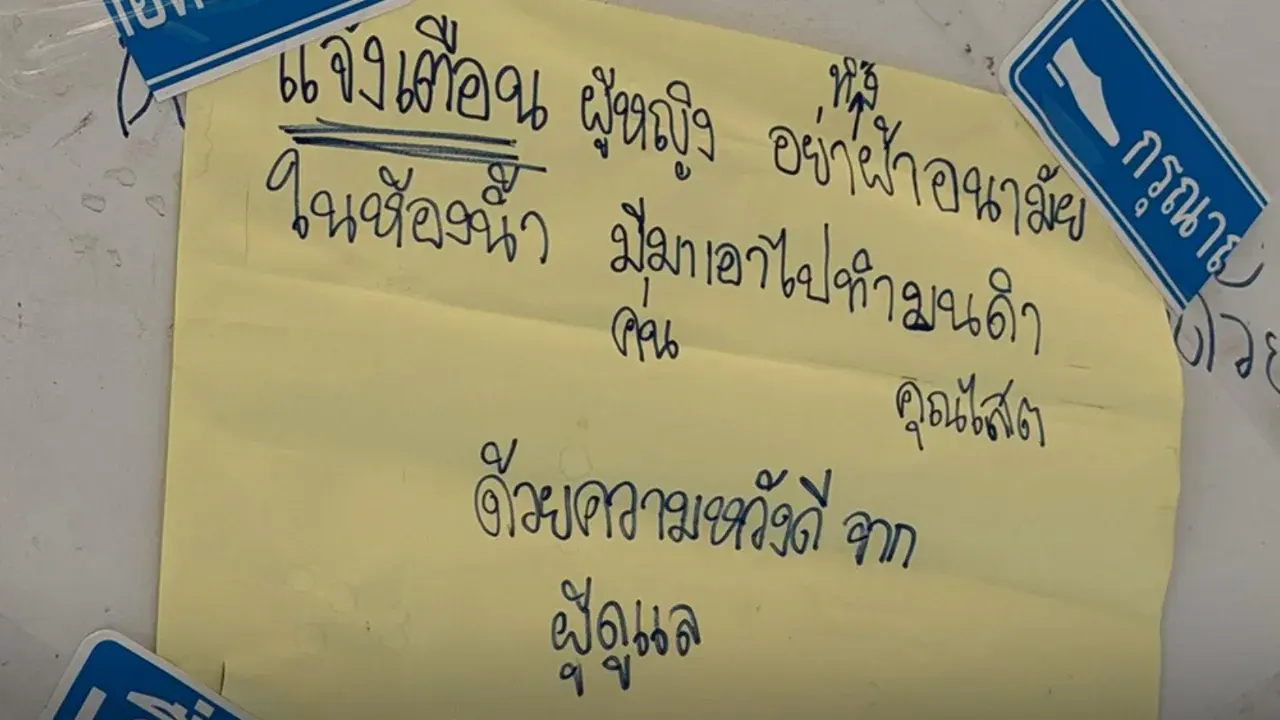 แจ้งเตือน ผู้หญิง อย่าทิ้งผ้าอนามัย
ในห้องน้ำ มีมาเอาไปทำมนดำ
คน
คุณไสต
ด้วยความหวังดี จาก
ผู้ดูแล
กรุณาถ